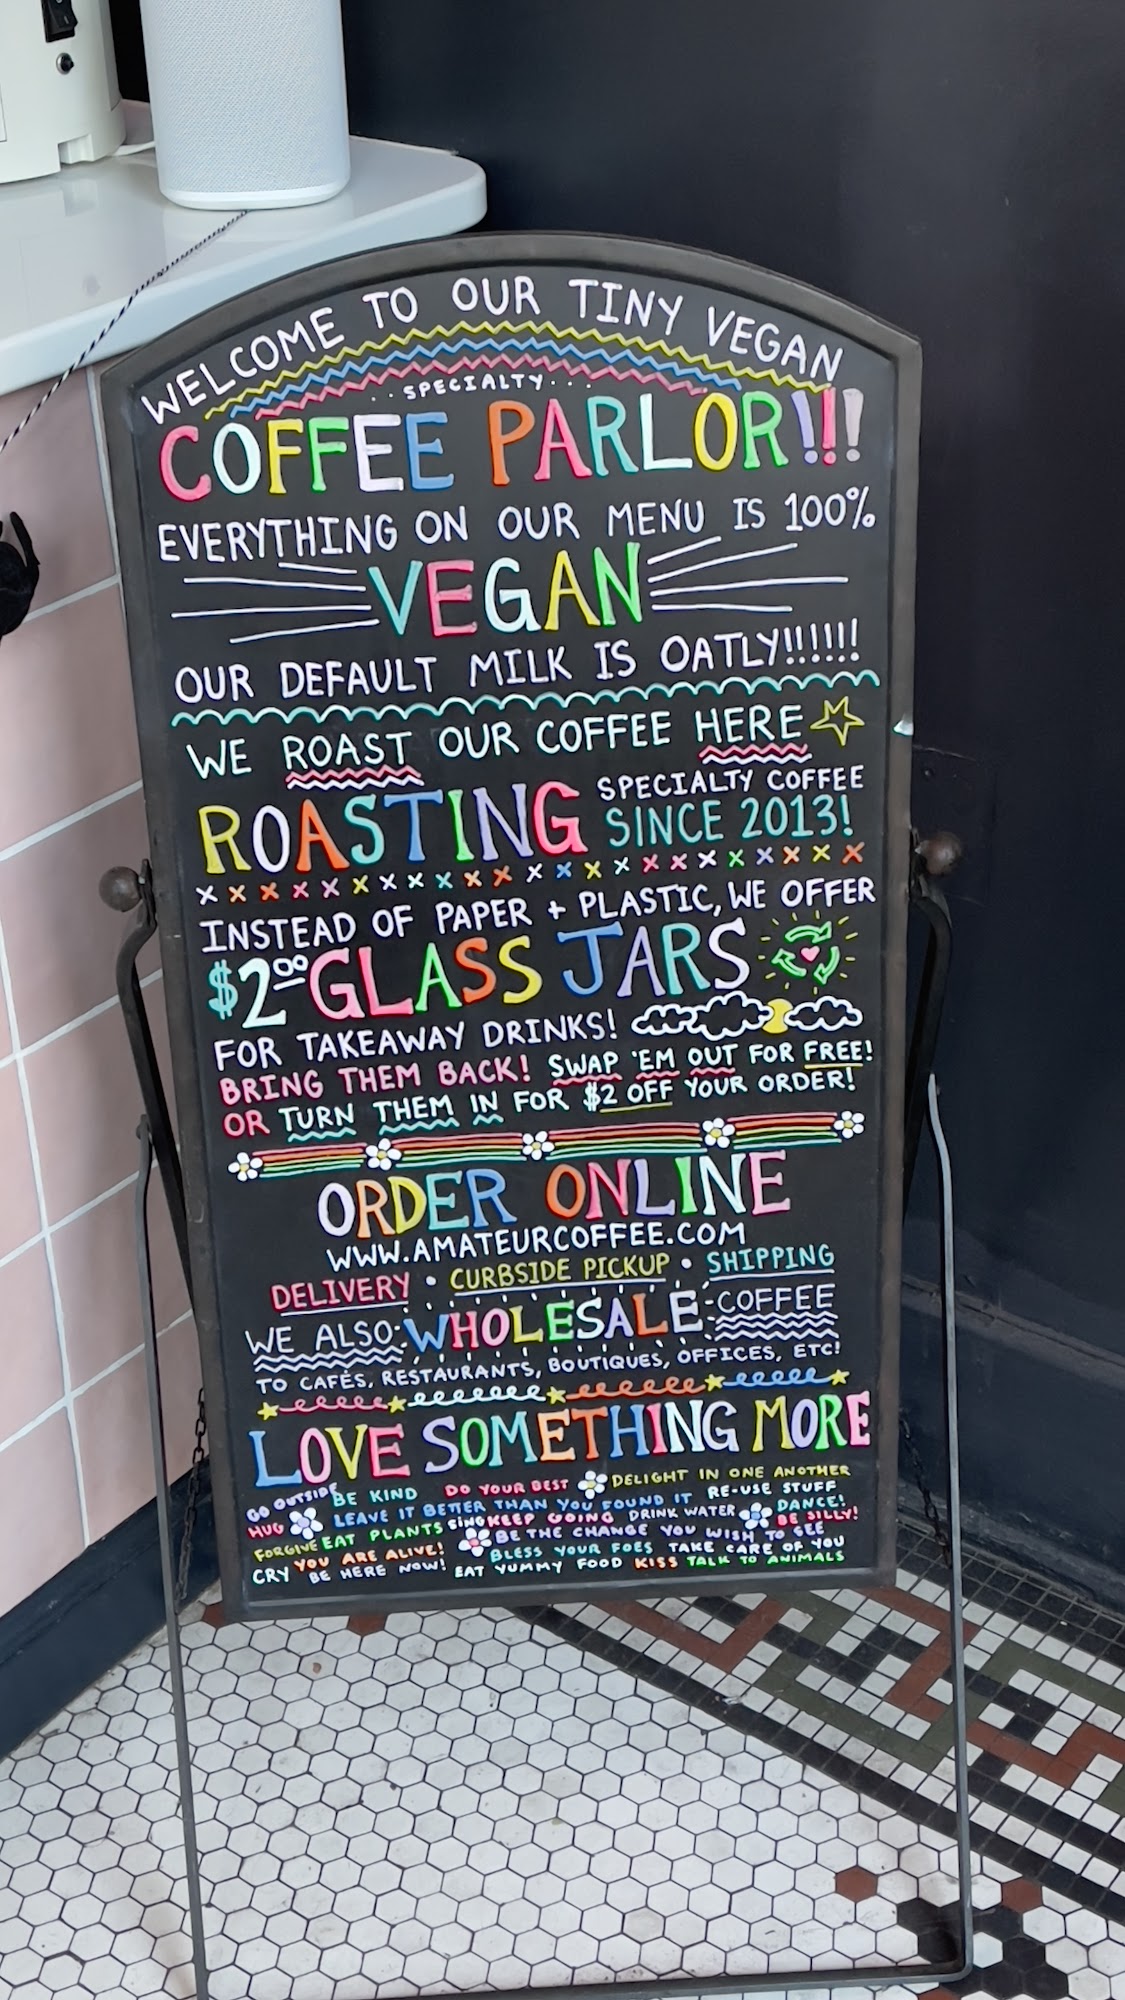 WELCOME TO OUR TINY VEGAN
..SPECIALTY...
COFFEE PARLOR!!!
EVERYTHING ON OUR MENU IS 100%
VEGAN
OUR DEFAULT MILK IS OATLY!!!!!!
WE ROAST OUR COFFEE HERE
ROASTING SPECIALTY COFFEE
SINCE 2013!
INSTEAD OF PAPER + PLASTIC, WE OFFER
$2.00 GLASS JARS
FOR TAKEAWAY DRINKS!
BRING THEM BACK! SWAP 'EM OUT FOR FREE!
OR TURN THEM IN FOR $2 OFF YOUR ORDER!
ORDER ONLINE
WWW.AMATEURCOFFEE.COM
DELIVERY • CURBSIDE PICKUP • SHIPPING
WE ALSO WHOLESALE COFFEE
TO CAFÉS, RESTAURANTS, BOUTIQUES, OFFICES, ETC!
LOVE SOMETHING MORE
GO OUTSIDE BE KIND DO YOUR BEST DELIGHT IN ONE ANOTHER
HUG LEAVE IT BETTER THAN YOU FOUND IT RE-USE STUFF
FORGIVE EAT PLANTS SING KEEP GOING DRINK WATER DANCE!
BE SILLY!
YOU ARE ALIVE! BE THE CHANGE YOU WISH TO SEE
BLESS YOUR FOES TAKE CARE OF YOU
CRY BE HERE NOW! EAT YUMMY FOOD KISS TALK TO ANIMALS